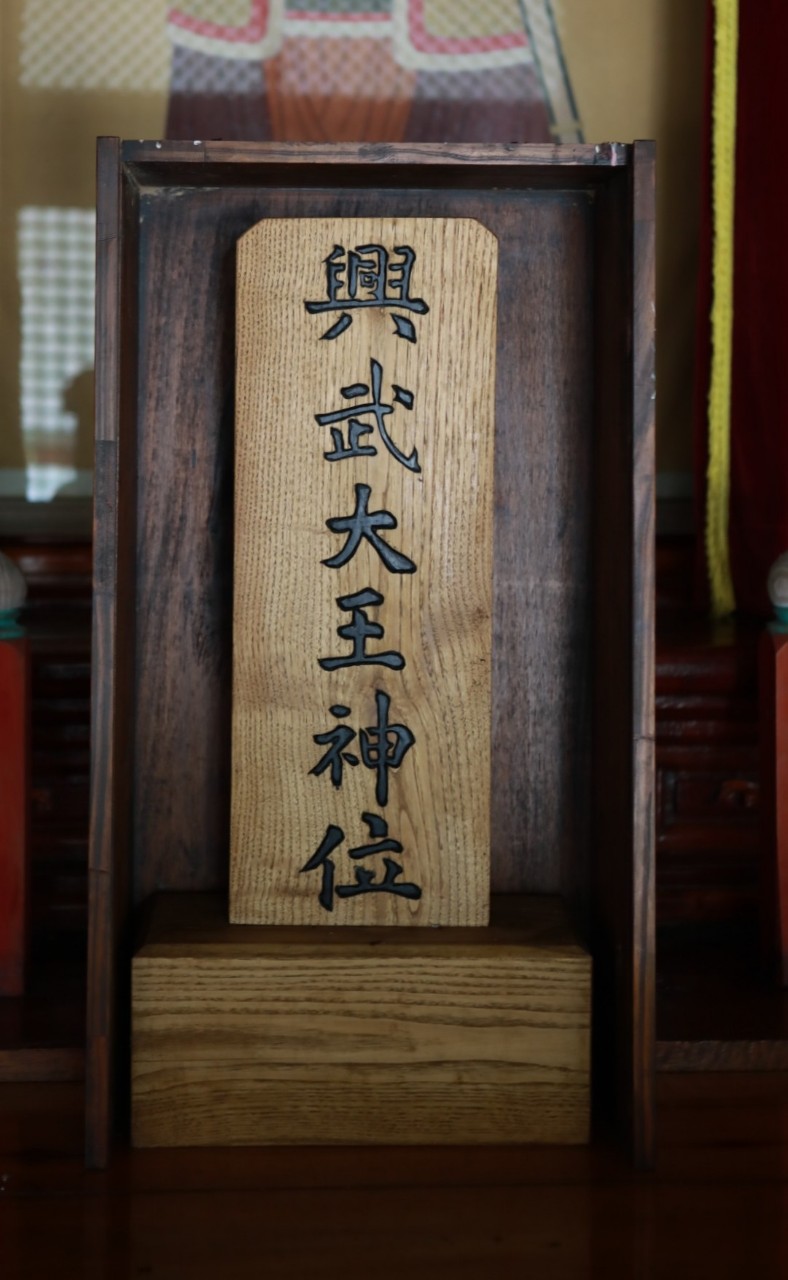 興武大王神位